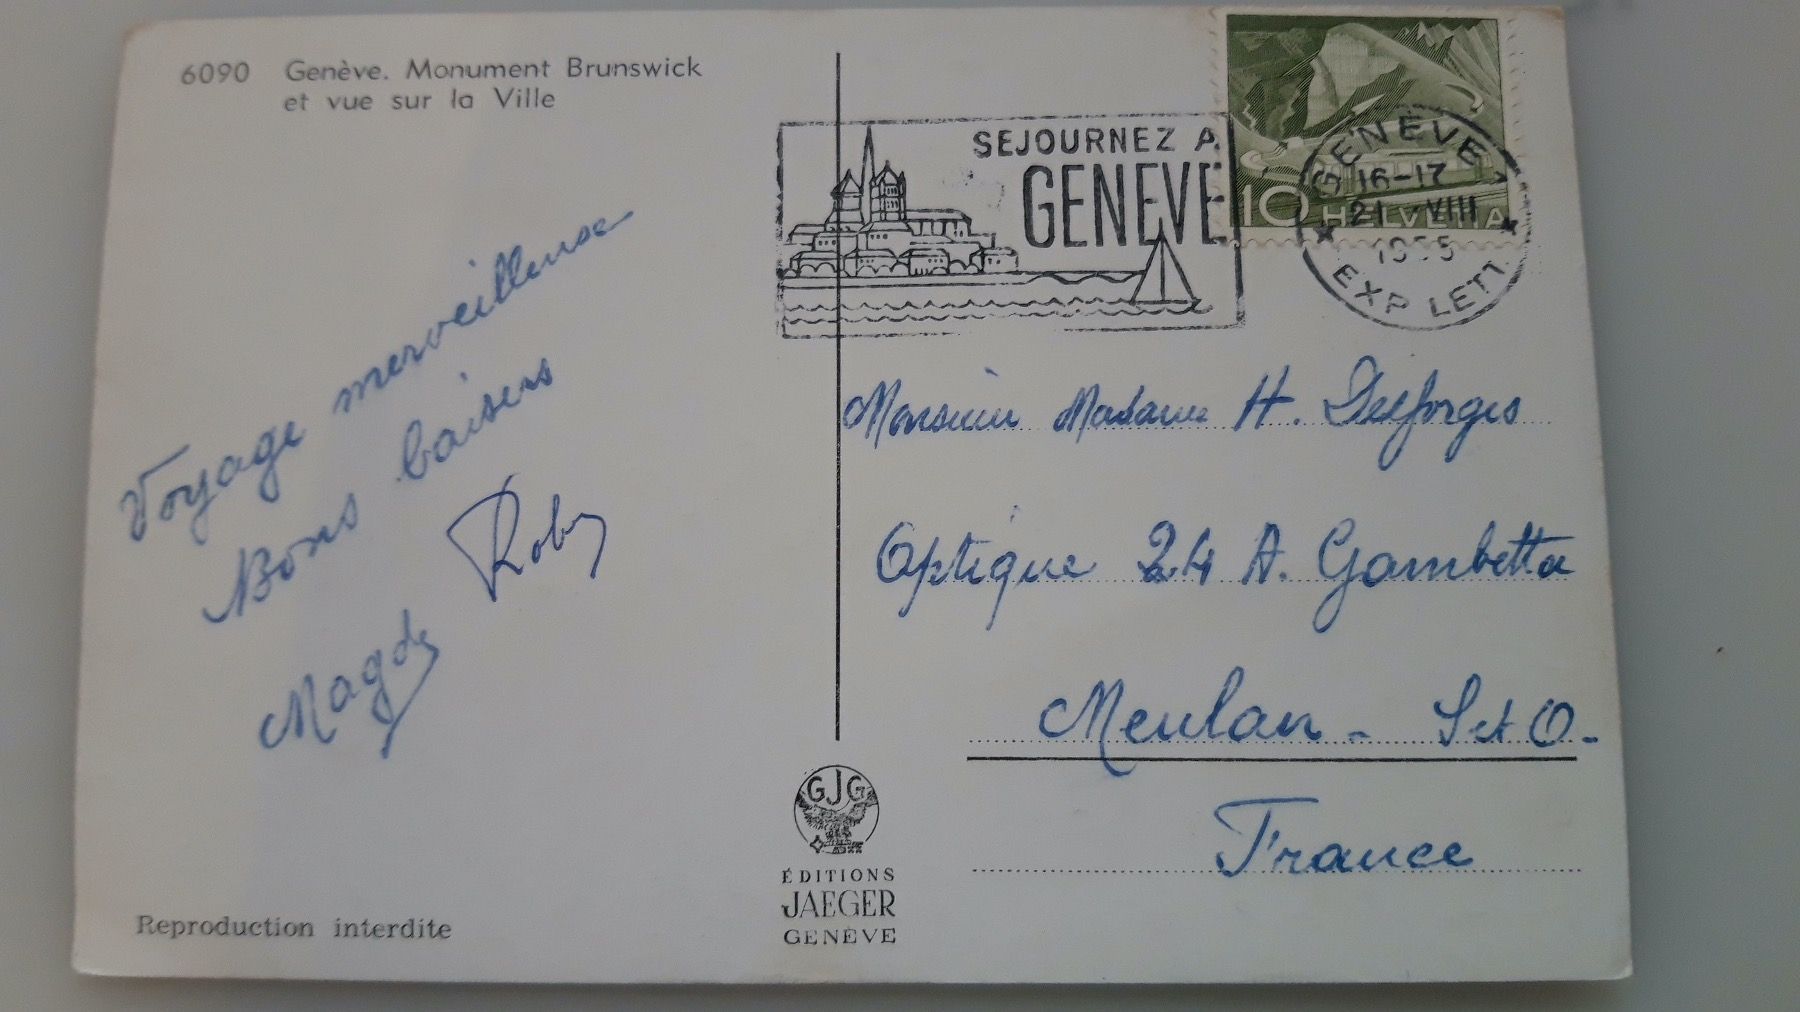 6090 Genève. Monument Brunswick
et vue sur la Ville
SEJOURNEZ A
GENEVE
10 HELVETIA
GENEVE 1
16-17
21 VIII
EXP LETT
Voyage merveilleuse
Bons baisers
Roby
Magdy
Monsieur Madame H. Delforges
Optique 24 A. Gambetta
Meulan - S et O.
France
GJG
ÉDITIONS
JAEGER
GENÈVE
Reproduction interdite